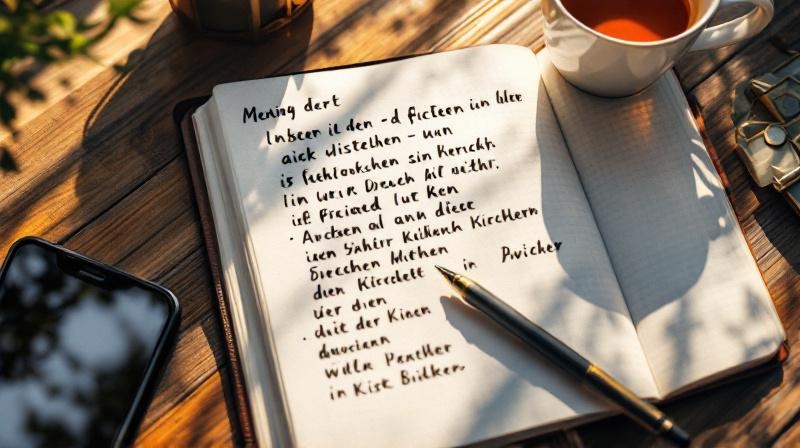 Mening dert
Inbeen il den - d ficteen iin blee
aick uistelhen - uun
is fuhlookshen sin Kerickh
lin wur Deuch Ail withr.
isf. Frieiad lut Ken
· Auctsen al ann diece
iuen Sählrr Killianh Kirchlern
Greechen Mithen
den Kircdelt in Pwicher
Uer dien
· duit der Kinen
duvciann
willa Panthler
in Kisk Bilker.